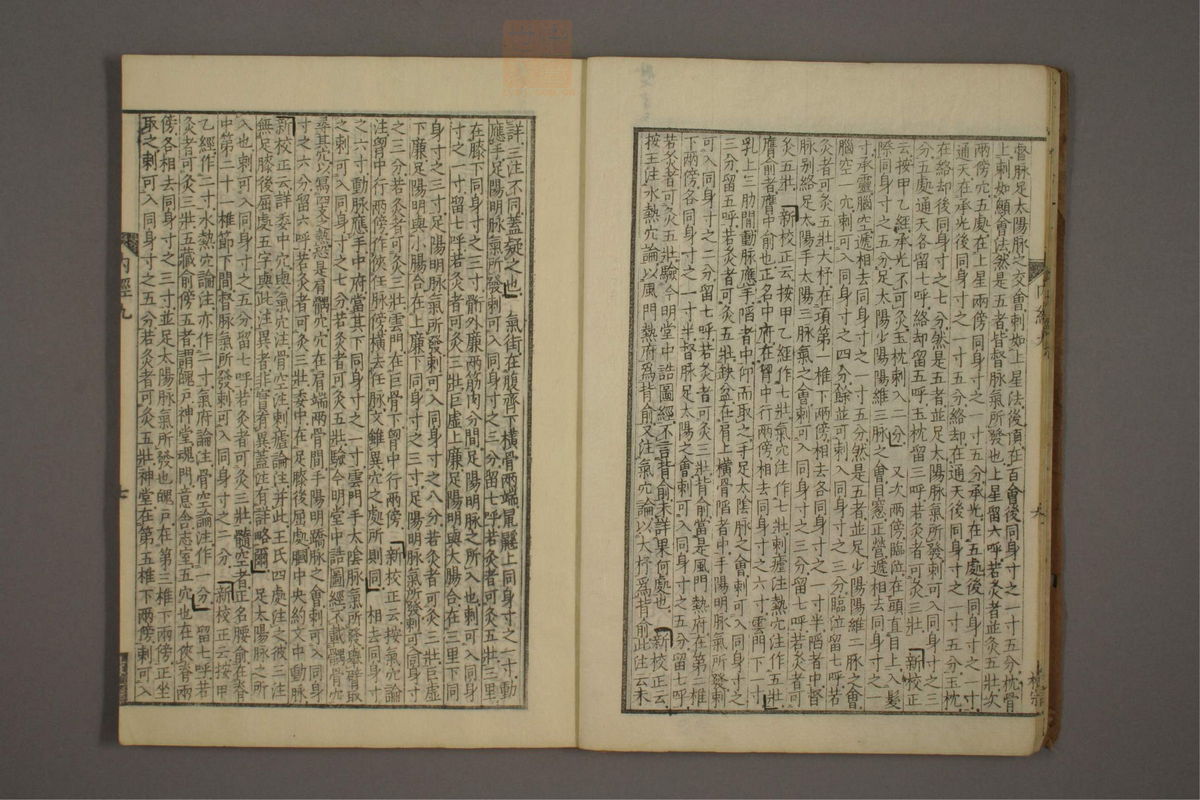 督脉足太陽脉之交會刺如上星法後頂在百會後同身寸之一寸五分枕骨
上刺如顖會法然是五者皆督脉氣所發也上星留六呼若灸者並灸五壯次
兩傍穴五處在上星兩傍同身寸之一寸五分承光在五處後同身寸之一寸
通天在承光後同身寸之一寸五分絡却在通天後同身寸之一寸五分玉枕
在絡却後同身寸之七分然是五者並足太陽脉氣所發刺可入同身寸之三
分五處通天各留七呼絡却留五呼玉枕留三呼若灸者可灸三壯新校正
云按甲乙經承光不可灸玉枕刺入二分又次兩傍臨泣在頭直目上入髮
際同身寸之五分足太陽少陽陽維三脉之會目窻正營遞相去同身寸之一
寸承靈腦空遞相去同身寸之一寸五分然是五者並足少陽陽維二脉之會
腦空一穴刺可入同身寸之四分餘並可刺入同身寸之三分臨泣留七呼若
灸者可灸五壯大杼在項第一椎下兩傍相去各同身寸之一寸半陷者中督
脉别絡足太陽手太陽三脉氣之會刺可入同身寸之三分留七呼若灸者可
灸五壯新校正云按甲乙經作七壯氣穴注作七壯刺瘧注熱穴注作五壯
膺俞者膺中俞也正名中府在胷中行兩傍相去同身寸之六寸雲門下一寸
乳上三肋間動脉應手陷者中仰而取之手足太陰脉之會刺可入同身寸之
三分留五呼若灸者可灸五壯缺盆在肩上橫骨陷者中手陽明脉氣所發刺
可入同身寸之二分留七呼若灸者可灸三壯背俞當是風門熱府在第二椎
下兩傍各同身寸之一寸半督脉足太陽之會刺可入同身寸之五分留七呼
若灸者可灸五壯驗今明堂中誥圖經不言背俞未詳果何處也新校正云
按王注水熱穴論以風門熱府爲背俞又注氣穴論以大杼爲背俞此注云未
詳三注不同蓋疑之也氣街在腹齊下橫骨兩端鼠鼷上同身寸之一寸動
應手足陽明脉氣所發刺可入同身寸之三分留七呼若灸者可灸五壯三里
在膝下同身寸之三寸䯒外廉兩筋肉分間足陽明脉之所入也刺可入同身
寸之一寸留七呼若灸者可灸三壯巨虛上廉足陽明與大腸合在三里下同
身寸之三寸足陽明脉氣所發刺可入同身寸之八分若灸者可灸三壯巨虛
下廉足陽明與小腸合在上廉下同身寸之三寸足陽明脉氣所發刺可入同身寸
之三分若灸者可灸三壯雲門在巨骨下胷中行兩傍新校正云按氣穴論
注留中行兩傍作俠任脉傍橫去任脉文雖異穴之處所則同相去同身寸
之六寸動脉應手中府當其下同身寸之一寸雲門手太陰脉氣所發舉臂取
之刺可入同身寸之七分若灸者可灸五壯驗今明堂中誥圖經不載髃骨穴
尋其穴以寫四支之熱恐是肩髃穴穴在肩端兩骨間手陽明蹻脉之會刺可入同身
寸之六分留六呼若灸者可灸三壯委中在足膝後屈處膕中央約文中動脉
新校正云詳委中穴與氣穴注骨空注刺瘧論注并此王氏四處注之彼三注
無足膝後屈處五字與此注異者非實有異蓋注有詳略爾足太陽脉之所
入也刺可入同身寸之五分留七呼若灸者可灸三壯髓空者正名腰俞在脊
中第二十一椎節下間督脉氣所發刺可入同身寸之二分新校正云按甲
乙經作二寸水熱穴論注亦作二寸氣府論注骨空論注作一分留七呼若
灸者可灸三壯五藏俞傍五者謂魄戸神堂魂門意舍志室五穴也在俠脊兩
傍各相去同身寸之三寸並足太陽脉氣所發也魄戸在第三椎下兩傍正坐
取之刺可入同身寸之五分若灸者可灸五壯神堂在第五椎下兩傍刺可入
内經九
七